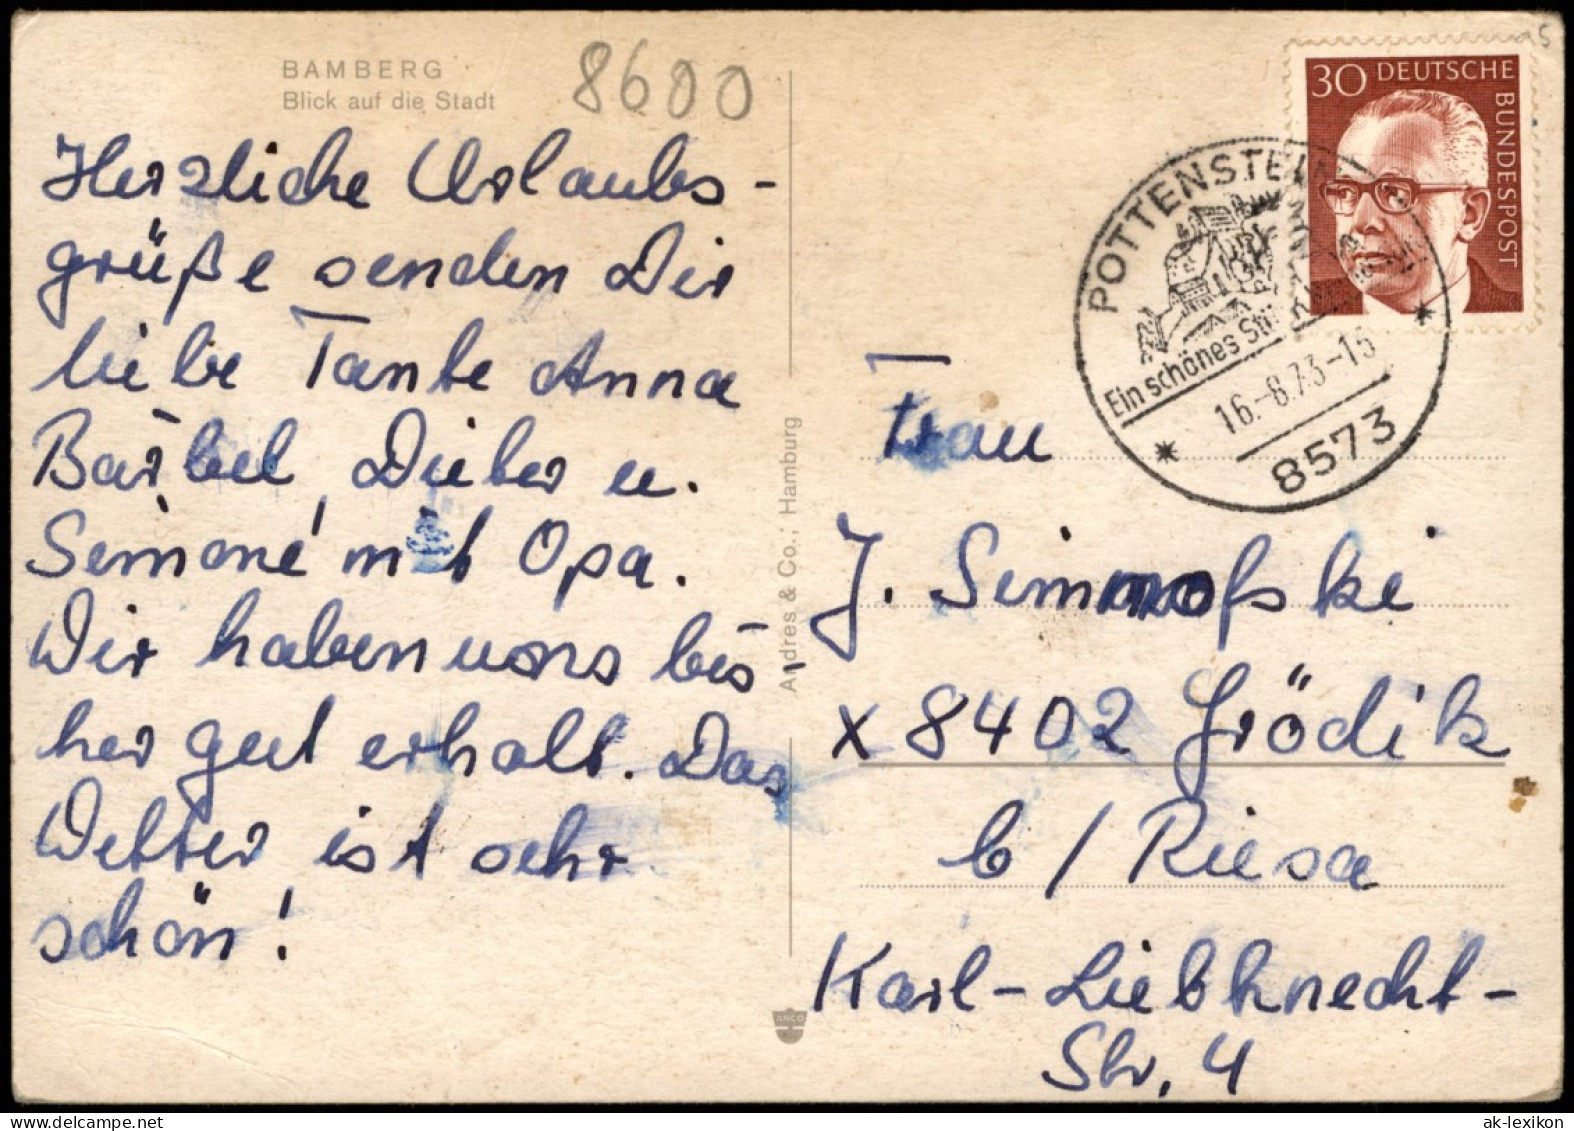 BAMBERG
Blick auf die Stadt
8600
Herzliche Urlaubs-
grüße senden Dir
liebe Tante Anna
Bärbel, Dieter u.
Simoné mit Opa.
Wir haben uns bis-
her gut erholt. Das
Wetter ist sehr
schön!
Andres & Co., Hamburg
ANCO
30 DEUTSCHE
BUNDESPOST
POTTENSTEIN
Ein schönes St
16.-8.73-15
8573
Frau
J. Simmofski
x 8402 Grödik
b/Riesa
Karl-Liebknecht-
Str. 4
ak-lexikon